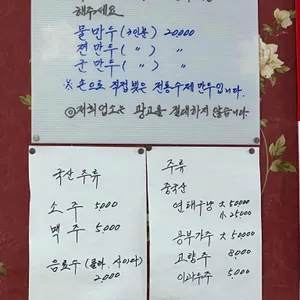 해주세요
물만두 (3인분) 20,000
찐만두 ( 〃 ) 〃
군만두 ( 〃 ) 〃
※ 손으로 직접 빚은 전통수제만두입니다.
◎ 저희업소는 광고를 절대하지 않습니다.
국산 주류
소 주 5,000
맥 주 5,000
음료수 (콜라, 사이다)
2,000
주류
중국산
연태구냥 大 50,000
小 25,000
공부가주 大 50,000
고량주 8,000
이과두주 5,000